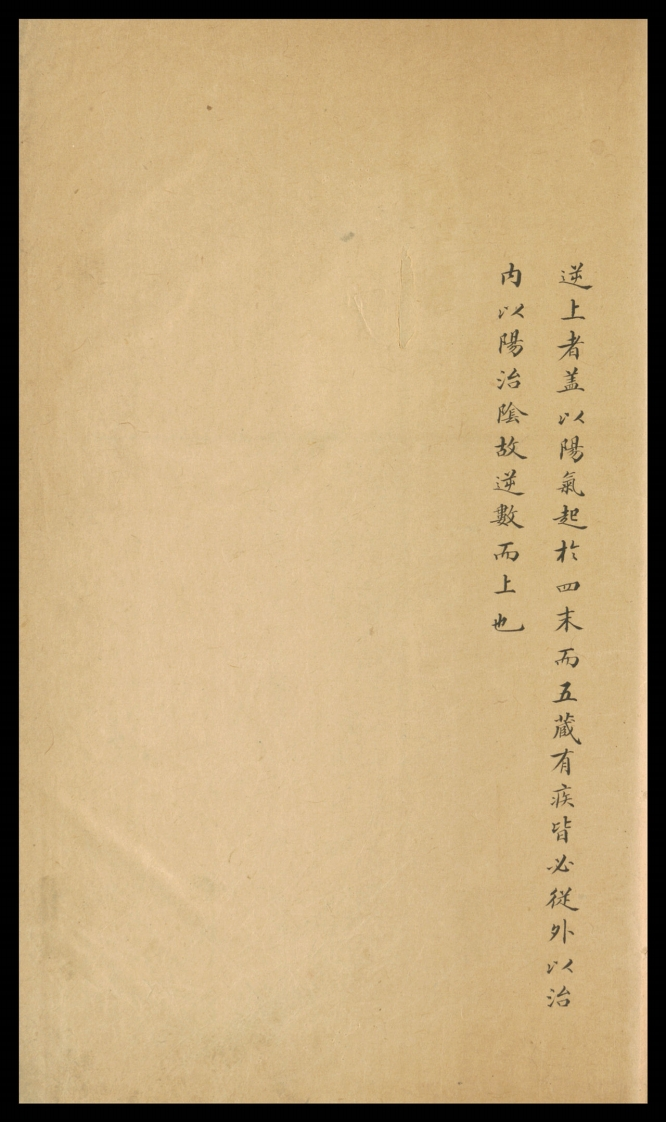 逆上者盖以陽氣起於四末而五蔵有疾皆必從外以治
内以陽治陰故逆數而上也